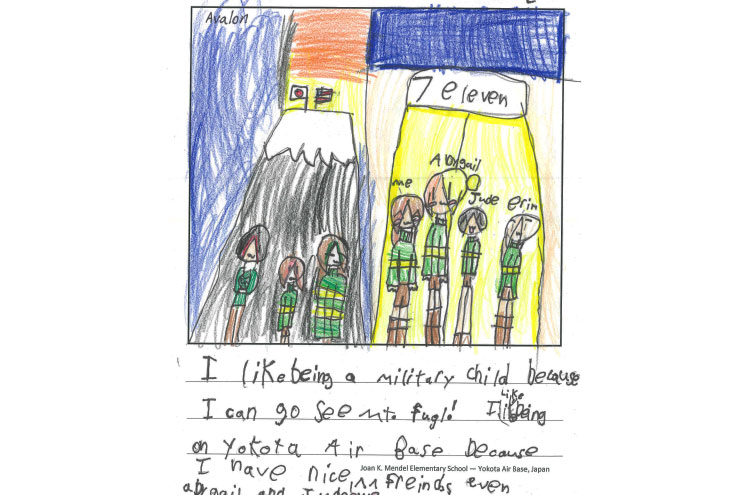 Avalon
7 eleven
Abigail
me
Jude
erin
I like being a military child because
I can go see mt. fugi! I like being
on Yokota Air Base because
I have nice freinds even
Joan K. Mendel Elementary School — Yokota Air Base, Japan
abigail and